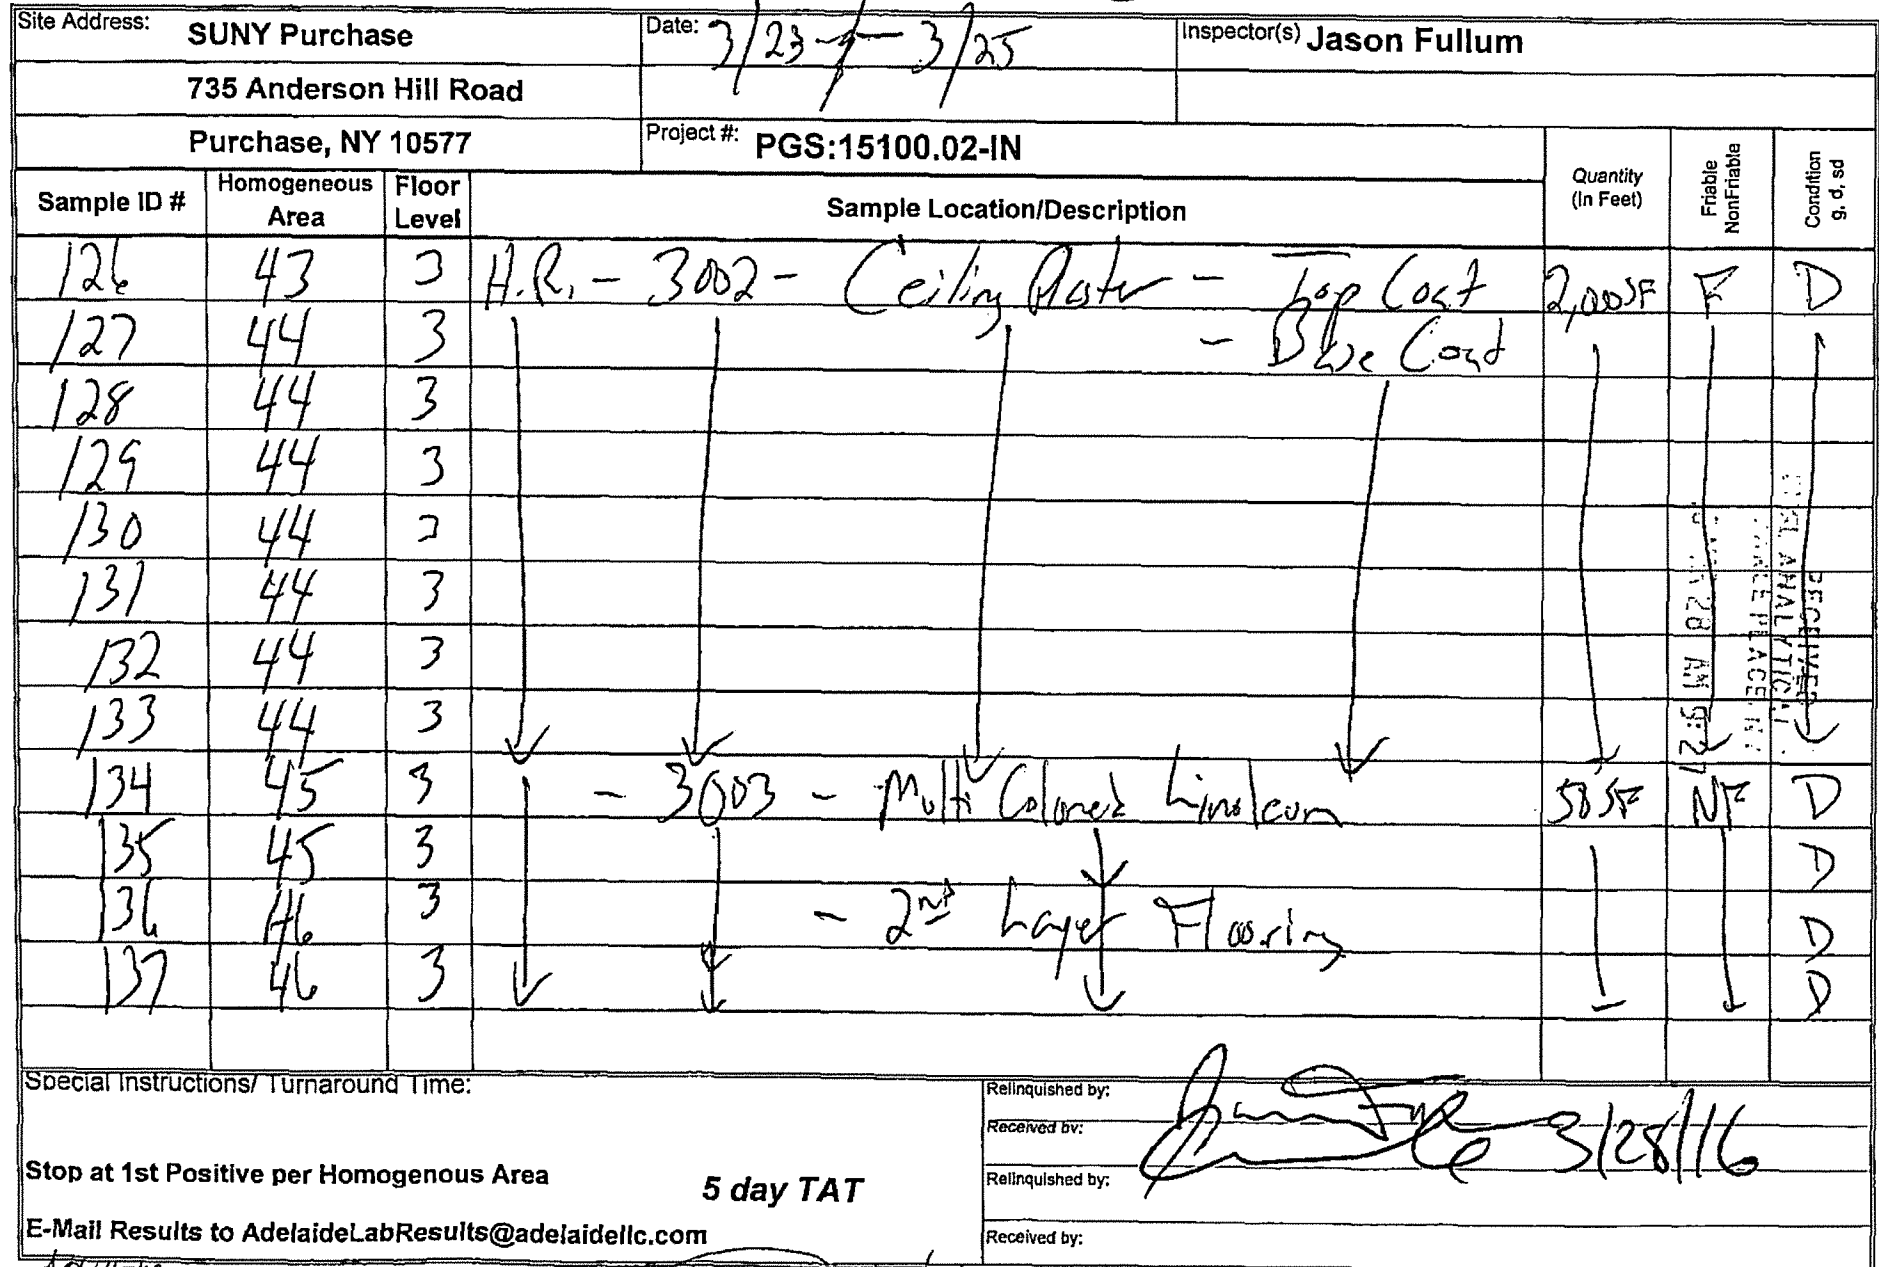 Site Address: SUNY Purchase Date: 3/23 - 3/25 Inspector(s) Jason Fullum
735 Anderson Hill Road
Purchase, NY 10577 Project #: PGS:15100.02-IN
Sample ID # Homogeneous Area Floor Level Sample Location/Description Quantity (In Feet) Friable NonFriable Condition g, d, sd
126 43 3 H.R. - 3002 - Ceiling Plaster - Top Coat 2,000SF F D
127 44 3 - Base Coat
128 44 3
129 44 3
130 44 3
131 44 3
132 44 3
133 44 3
134 45 3 - 3003 - Multi Colored Linoleum 58SF NF D
135 45 3 D
136 46 3 - 2nd Layer Flooring D
137 46 3 D
RECEIVED
ANALYTICAL
28 AM 9:27
Special Instructions/ Turnaround Time:
Stop at 1st Positive per Homogenous Area 5 day TAT
E-Mail Results to AdelaideLabResults@adelaidellc.com
Relinquished by: 3/28/16
Received by:
Relinquished by:
Received by: